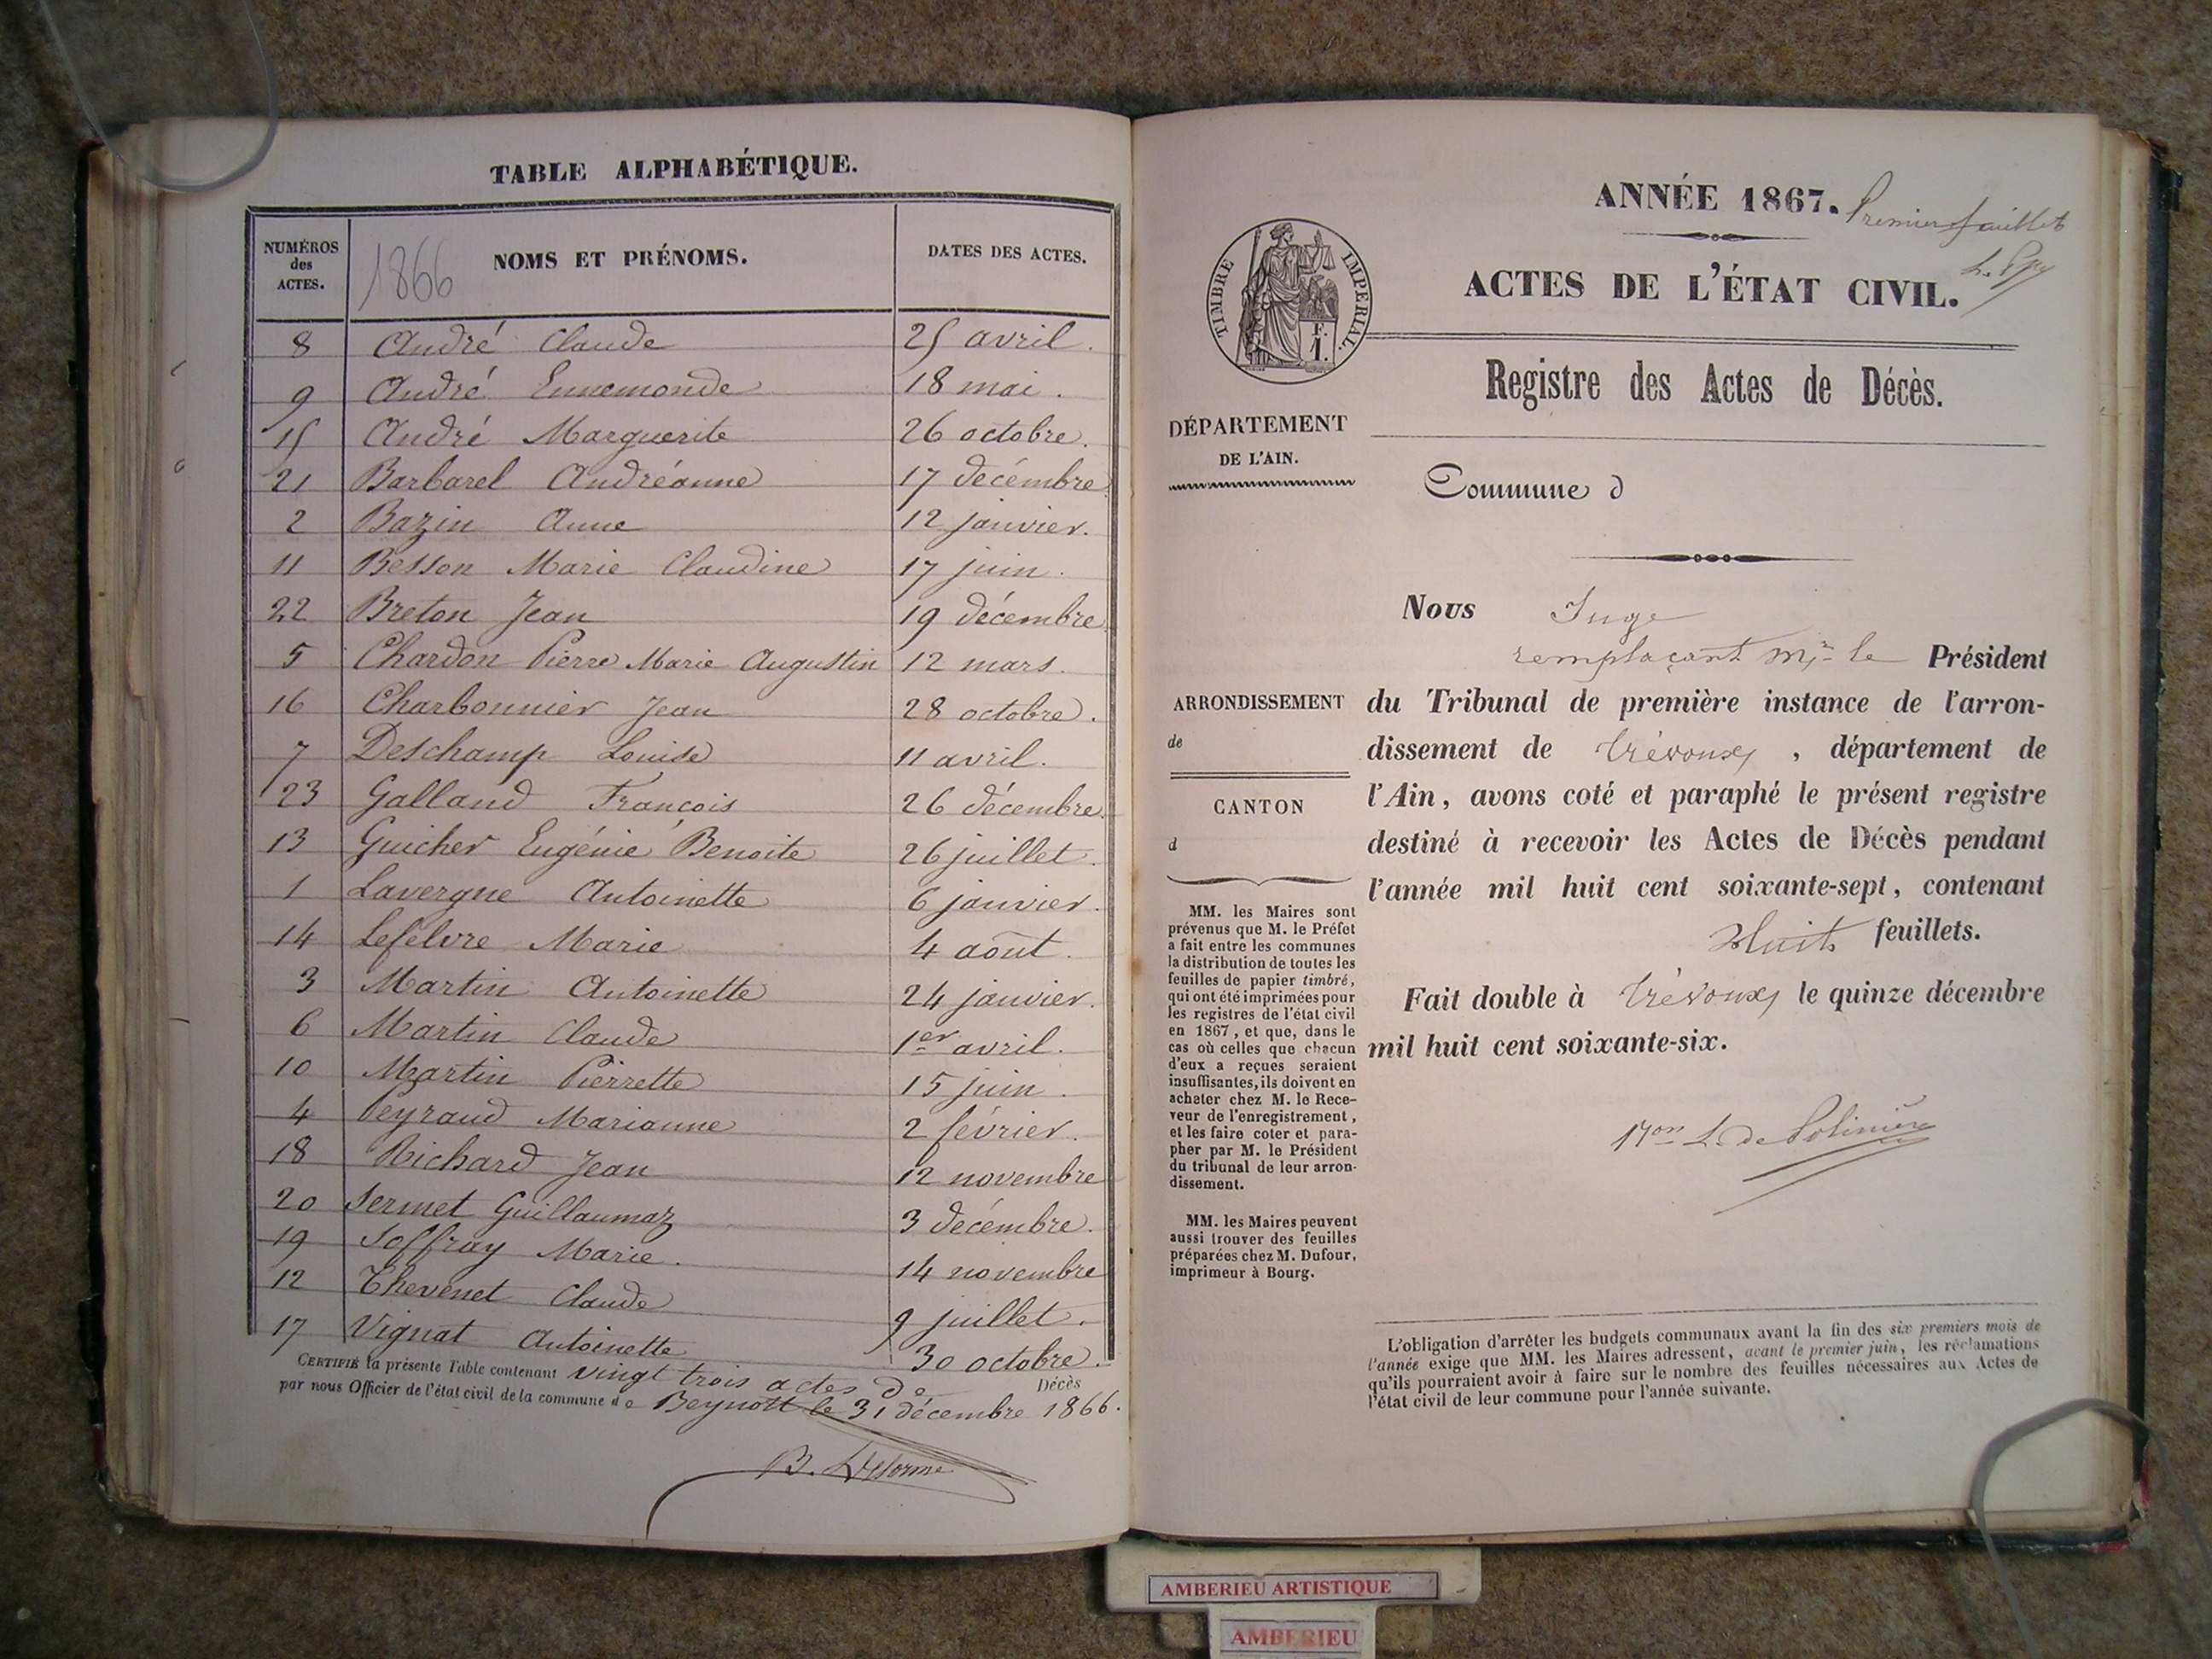 TABLE ALPHABÉTIQUE.
NUMÉROS des ACTES. 1866 NOMS ET PRÉNOMS. DATES DES ACTES.
8 André Claude 25 avril.
9 André Ennemonde 18 mai.
15 André Marguerite 26 octobre.
21 Barbarel Andréanne 17 décembre
2 Bazin Anne 12 janvier.
11 Besson Marie Claudine 17 juin.
22 Breton Jean 19 décembre
5 Chardon Pierre Marie Augustin 12 mars.
16 Charbonnier Jean 28 octobre.
7 Deschamp Louise 11 avril.
23 Galland François 26 décembre.
13 Guicher Eugénie Benoite 26 juillet.
1 Lavergne Antoinette 6 janvier.
14 Lefebvre Marie 4 août.
3 Martin Antoinette 24 janvier.
6 Martin Claude 1er avril.
10 Martin Pierrette 15 juin.
4 Peyraud Marianne 2 février.
18 Richard Jean 12 novembre
20 Sermet Guillaumaz 3 décembre.
19 Soffray Marie. 14 novembre
12 Thevenet Claude 9 juillet.
17 Vignat Antoinette 30 octobre.
CERTIFIÉ la présente Table contenant vingt trois actes de Décès
par nous Officier de l'état civil de la commune de Beynost le 31 décembre 1866.
B. Delorme
ANNÉE 1867. Premier feuillet
ACTES DE L'ÉTAT CIVIL.
TIMBRE IMPÉRIAL.
F.
1.
Registre des Actes de Décès.
DÉPARTEMENT
DE L'AIN.
Commune d
Nous Juge
remplaçant Mr le Président
du Tribunal de première instance de l'arron-
dissement de Trévoux, département de
l'Ain, avons coté et paraphé le présent registre
destiné à recevoir les Actes de Décès pendant
l'année mil huit cent soixante-sept, contenant
Huit feuillets.
Fait double à Trévoux le quinze décembre
mil huit cent soixante-six.
L. de Polinière
ARRONDISSEMENT
de
CANTON
d
MM. les Maires sont
prévenus que M. le Préfet
a fait entre les communes
la distribution de toutes les
feuilles de papier timbré,
qui ont été imprimées pour
les registres de l'état civil
en 1867, et que, dans le
cas où celles que chacun
d'eux a reçues seraient
insuffisantes, ils doivent en
acheter chez M. le Rece-
veur de l'enregistrement,
et les faire coter et para-
pher par M. le Président
du tribunal de leur arron-
dissement.
MM. les Maires peuvent
aussi trouver des feuilles
préparées chez M. Dufour,
imprimeur à Bourg.
L'obligation d'arrêter les budgets communaux avant la fin des six premiers mois de
l'année exige que MM. les Maires adressent, avant le premier juin, les réclamations
qu'ils pourraient avoir à faire sur le nombre des feuilles nécessaires aux Actes de
l'état civil de leur commune pour l'année suivante.
AMBERIEU ARTISTIQUE
AMBERIEU